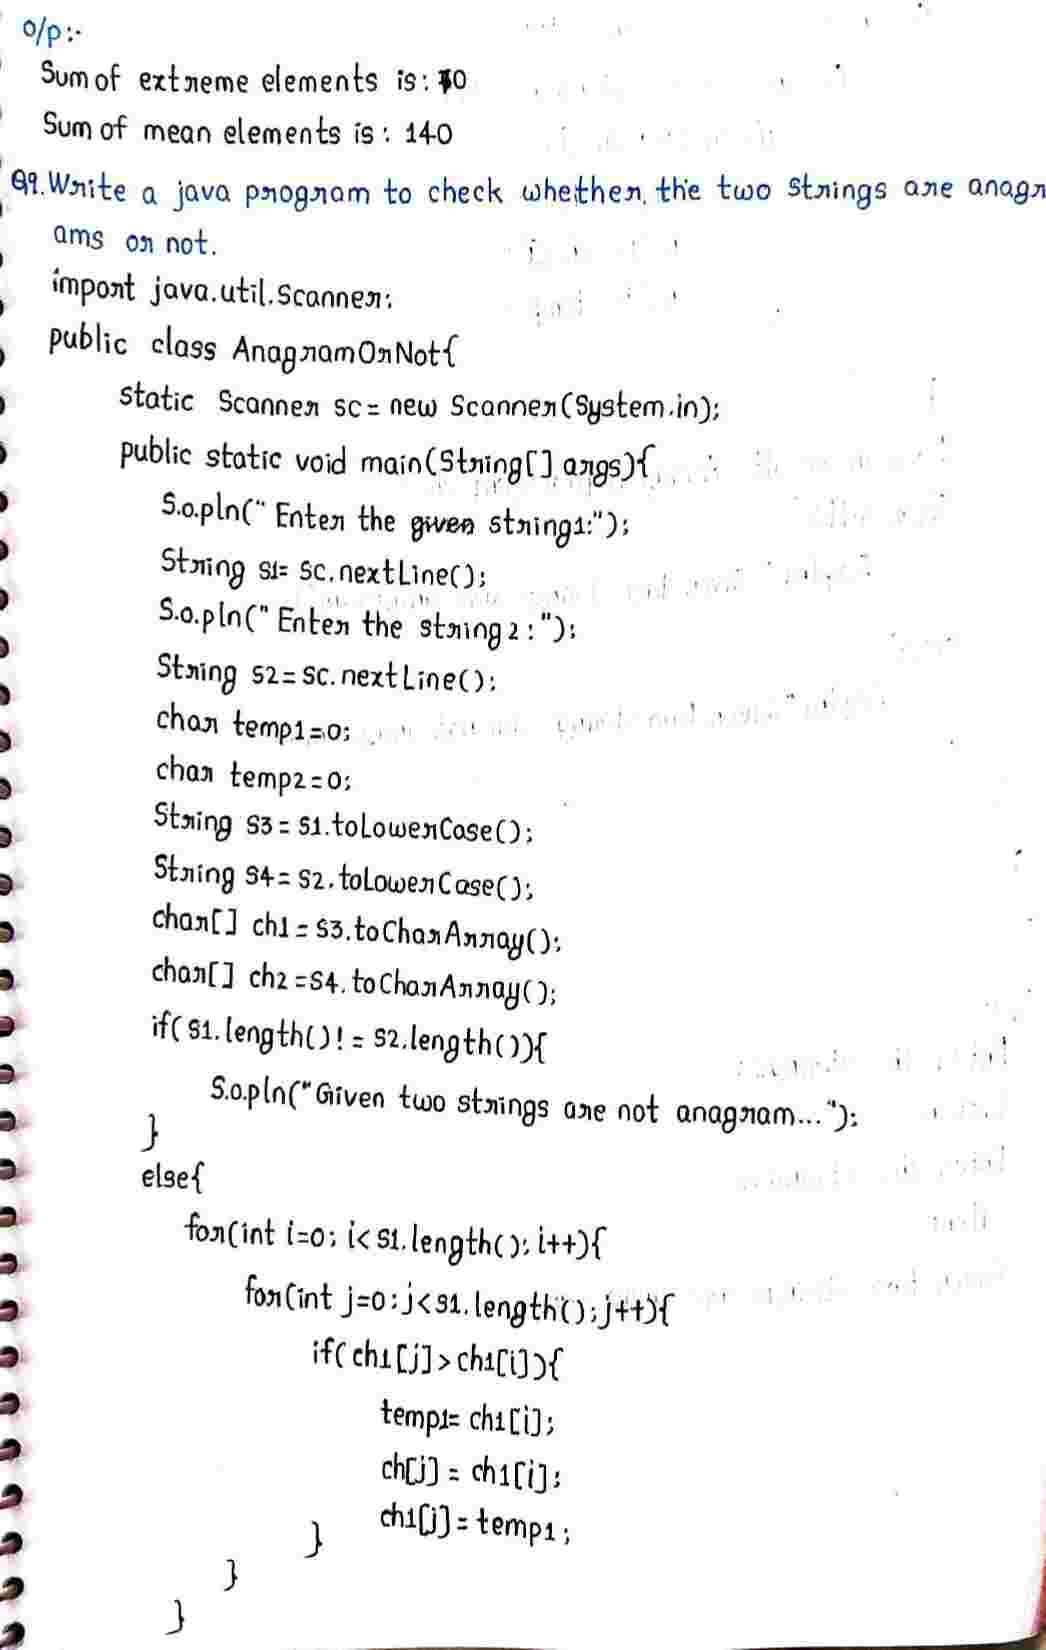 o/p:-
Sum of extreme elements is: 70
Sum of mean elements is: 140
Q9. Write a java program to check whether the two strings are anagr
ams or not.
import java.util.Scanner;
public class AnagramOrNot{
static Scanner sc = new Scanner(System.in);
public static void main(String[] args){
S.o.pln("Enter the given string1:");
String s1= sc.nextLine();
S.o.pln("Enter the string2:");
String s2= sc.nextLine();
char temp1=0;
char temp2=0;
String s3= s1.toLowerCase();
String s4= s2.toLowerCase();
char[] ch1 = s3.toCharArray();
char[] ch2 =s4.toCharArray();
if(s1.length()!= s2.length()){
S.o.pln("Given two strings are not anagram...");
}
else{
for(int i=0; i<s1.length(); i++){
for(int j=0;j<s1.length();j++){
if(ch1[j]>ch1[i]){
temp1= ch1[i];
ch[j] = ch1[i];
ch1[j]=temp1;
}
}
}